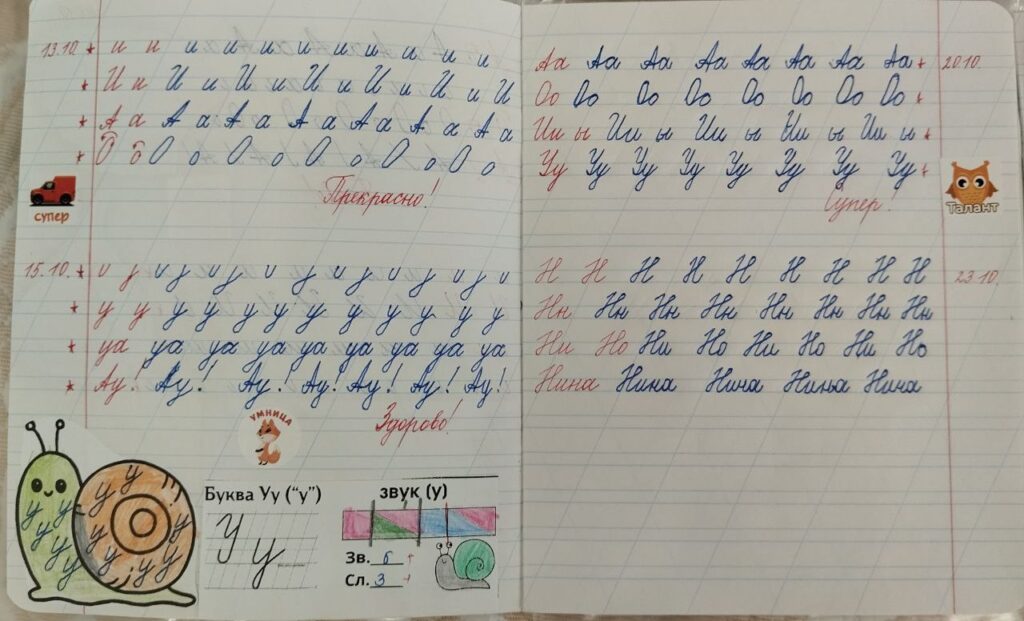 13.10. и и и и и и и и и и и
И и И и И и И и И и И и И
А а А а А а А а А а А а А а
О о О о О о О о О о О о
Прекрасно!
супер
15.10. и у и у и у и у и у и у и у и
у у у у у у у у у у у
уа уа уа уа уа уа уа уа уа
Ау! Ау! Ау! Ау! Ау! Ау! Ау!
УМНИЦА
Здорово!
Буква Уу ("у")
У у
звук (у)
Зв. 6 +
Сл. 3 +
Аа Аа Аа Аа Аа Аа Аа Аа 20.10.
Оо Оо Оо Оо Оо Оо Оо Оо
Ии ы Ии ы Ии ы Ии ы Ии ы
Уу Уу Уу Уу Уу Уу Уу Уу
Супер!
Талант
Н Н Н Н Н Н Н Н Н 23.10.
Нн Нн Нн Нн Нн Нн Нн Нн
Ни Но Ни Но Ни Но Ни Но
Нина Нина Нина Нина Нина